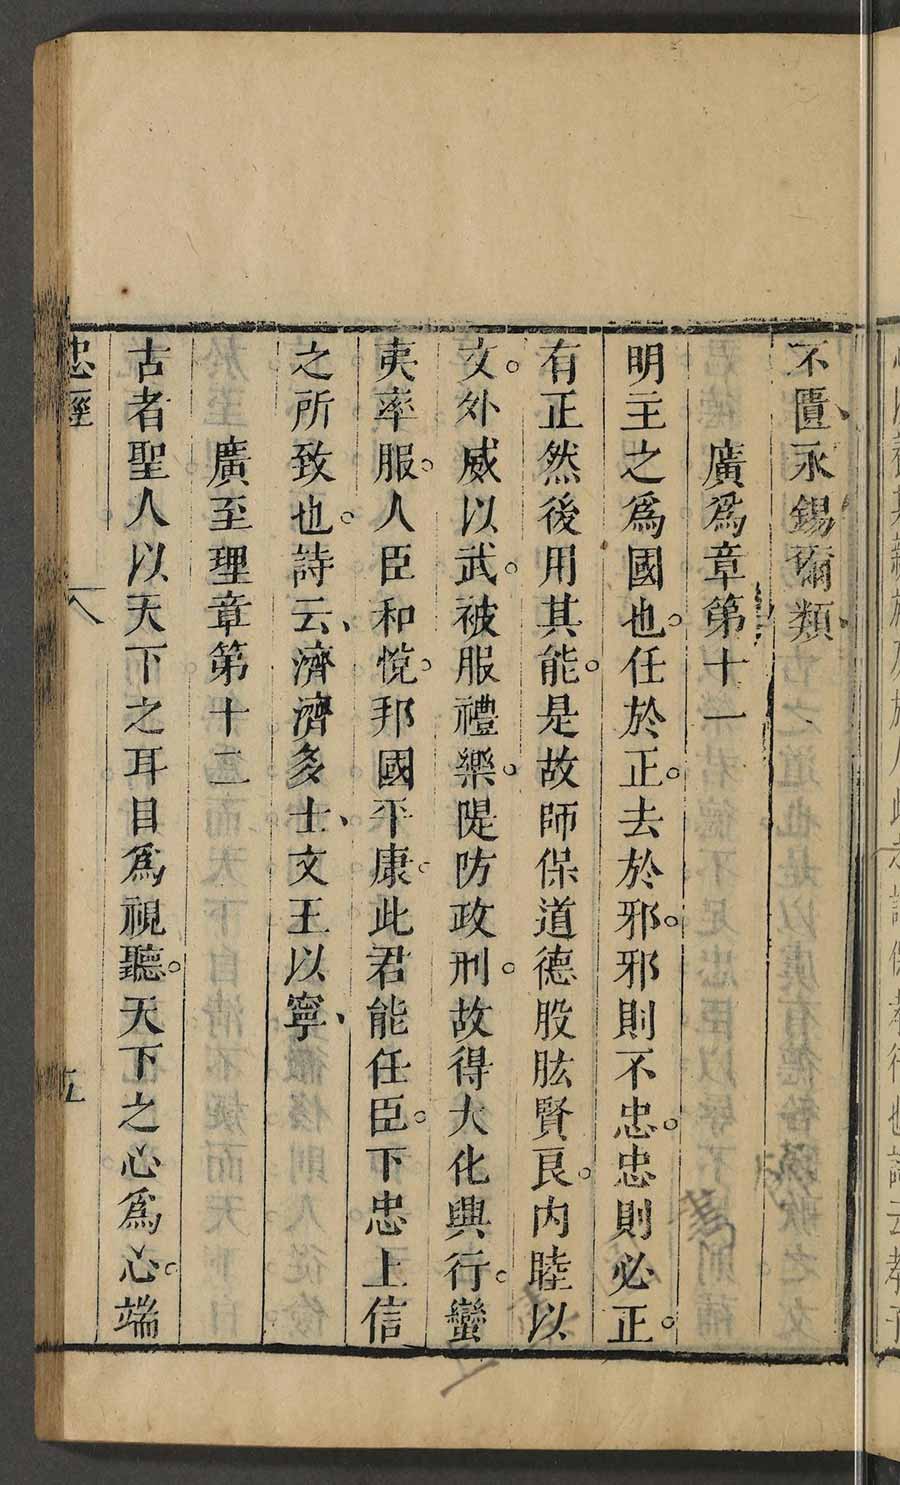 不匱、永錫爾類、
廣爲章第十一
明主之爲國也。任於正。去於邪。邪則不忠。忠則必正。
有正然後用其能。是故師保道德股肱賢良。内睦以
文。外威以武。被服禮樂。隄防政刑。故得大化興行。蠻
夷率服。人臣和悅。邦國平康。此君能任臣。下忠上信
之所致也。詩云、濟濟多士、文王以寧、
廣至理章第十二
古者聖人以天下之耳目爲視聽。天下之心爲心。端
忠經
八
五